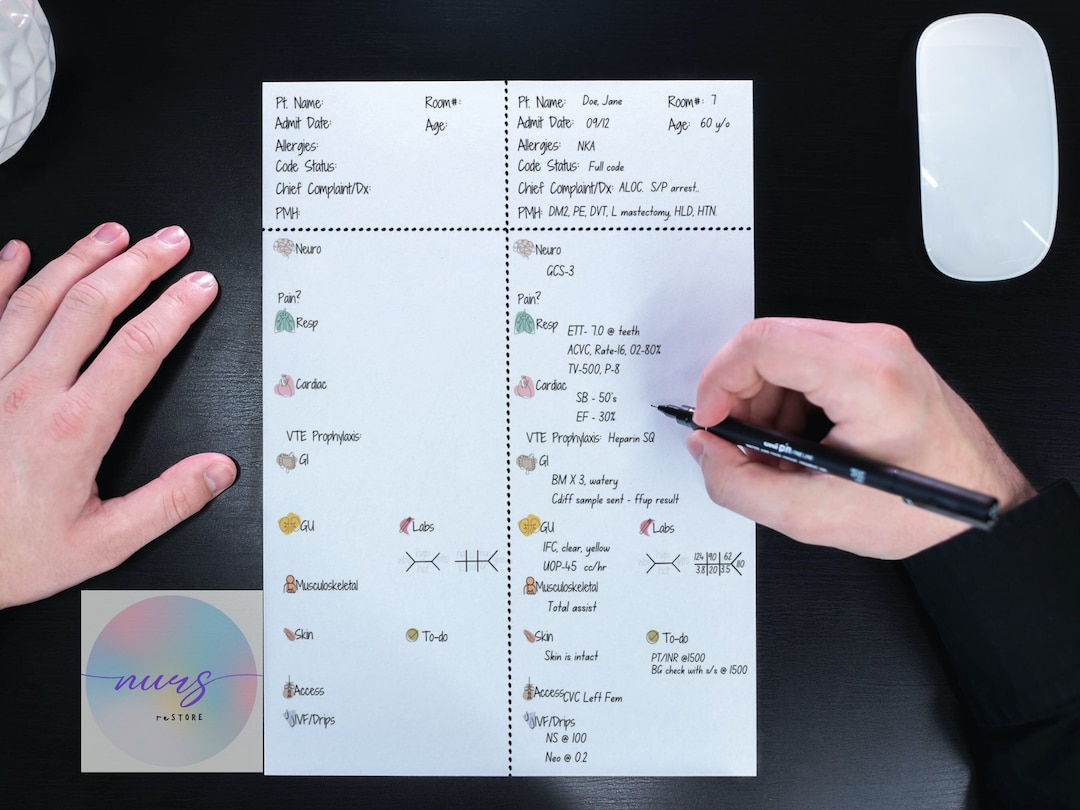 Pt. Name: Room#:
Admit Date: Age:
Allergies:
Code Status:
Chief Complaint/Dx:
PMH:
Neuro
Pain?
Resp
Cardiac
VTE Prophylaxis:
GI
GU Labs
Musculoskeletal
Skin To-do
Access
IVF/Drips
Pt. Name: Doe, Jane Room#: 7
Admit Date: 09/12 Age: 60 y/o
Allergies: NKA
Code Status: Full code
Chief Complaint/Dx: ALOC. S/P arrest.
PMH: DM2, PE, DVT, L mastectomy, HLD, HTN.
Neuro
GCS-3
Pain?
Resp
ETT- 7.0 @ teeth
ACVC, Rate-16, O2-80%
TV-500, P-8
Cardiac
SB - 50's
EF - 30%
VTE Prophylaxis: Heparin SQ
GI
BM X 3, watery
Cdiff sample sent - ffup result
GU Labs
IFC, clear, yellow
UOP-45 cc/hr
124 90 62
3.8 20 3.5 110
Musculoskeletal
Total assist
Skin To-do
Skin is intact
PT/INR @1500
BG check with s/s @ 1500
Access CVC Left Fem
IVF/Drips
NS @ 100
Neo @ 0.2
uni pin FINE LINE
nurs
reSTORE